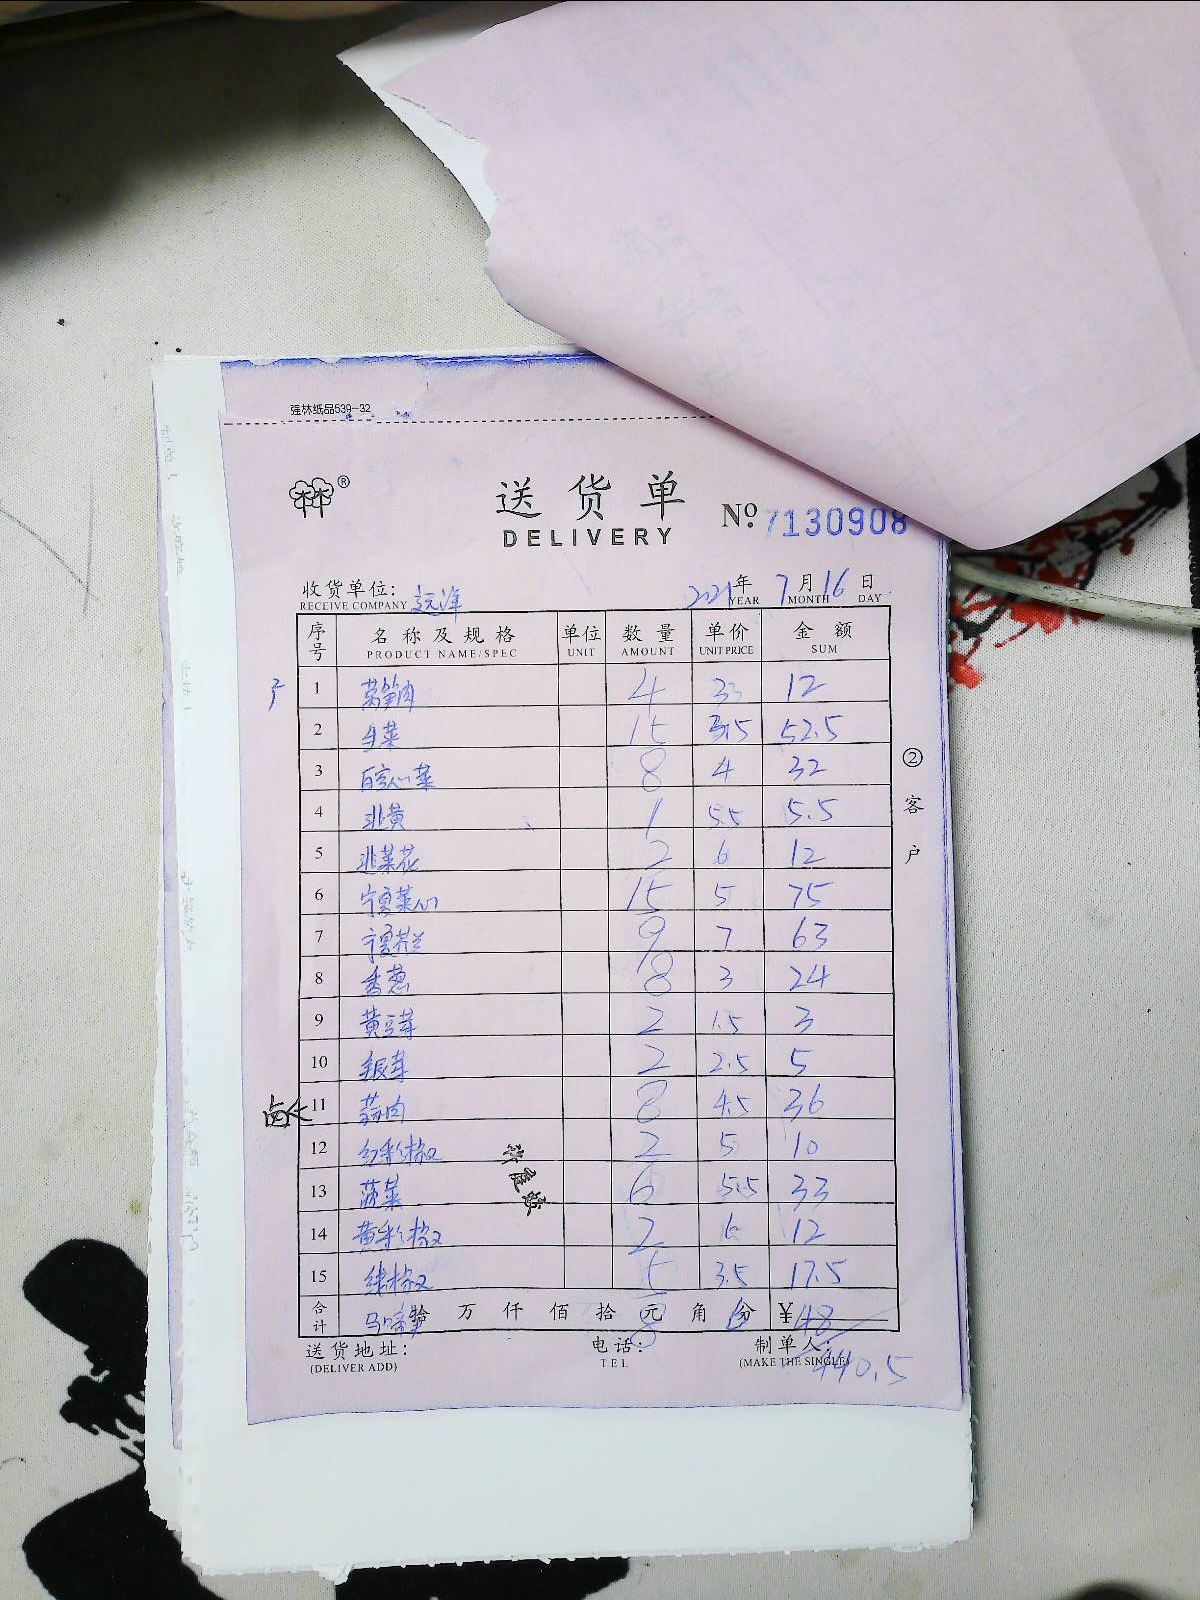 强林纸品539-32
® 送货单 No. 7130908
DELIVERY
收货单位: 远洋 2021年 7月 16日
RECEIVE COMPANY YEAR MONTH DAY
序号 名称及规格 单位 数量 单价 金额
PRODUCT NAME/SPEC UNIT AMOUNT UNIT PRICE SUM
1 莴笋肉 4 3 12
2 生菜 15 3.5 52.5
3 百宝心菜 8 4 32
4 韭黄 1 5.5 5.5
5 韭菜花 2 6 12
6 宁夏菜心 15 5 75
7 宁夏芥兰 9 7 63
8 香葱 8 3 24
9 黄豆芽 2 1.5 3
10 银芽 2 2.5 5
11 蒜肉 8 4.5 36
12 红彩椒 2 5 10
13 菠菜 6 5.5 33
14 黄彩椒 2 6 12
15 绿椒 5 3.5 17.5
合计 拾 万 仟 佰 拾 元 角 分 ¥
8 6 48
送货地址: 电话: 制单人:
(DELIVER ADD) TEL (MAKE THE SINGLE)
440.5
②客户